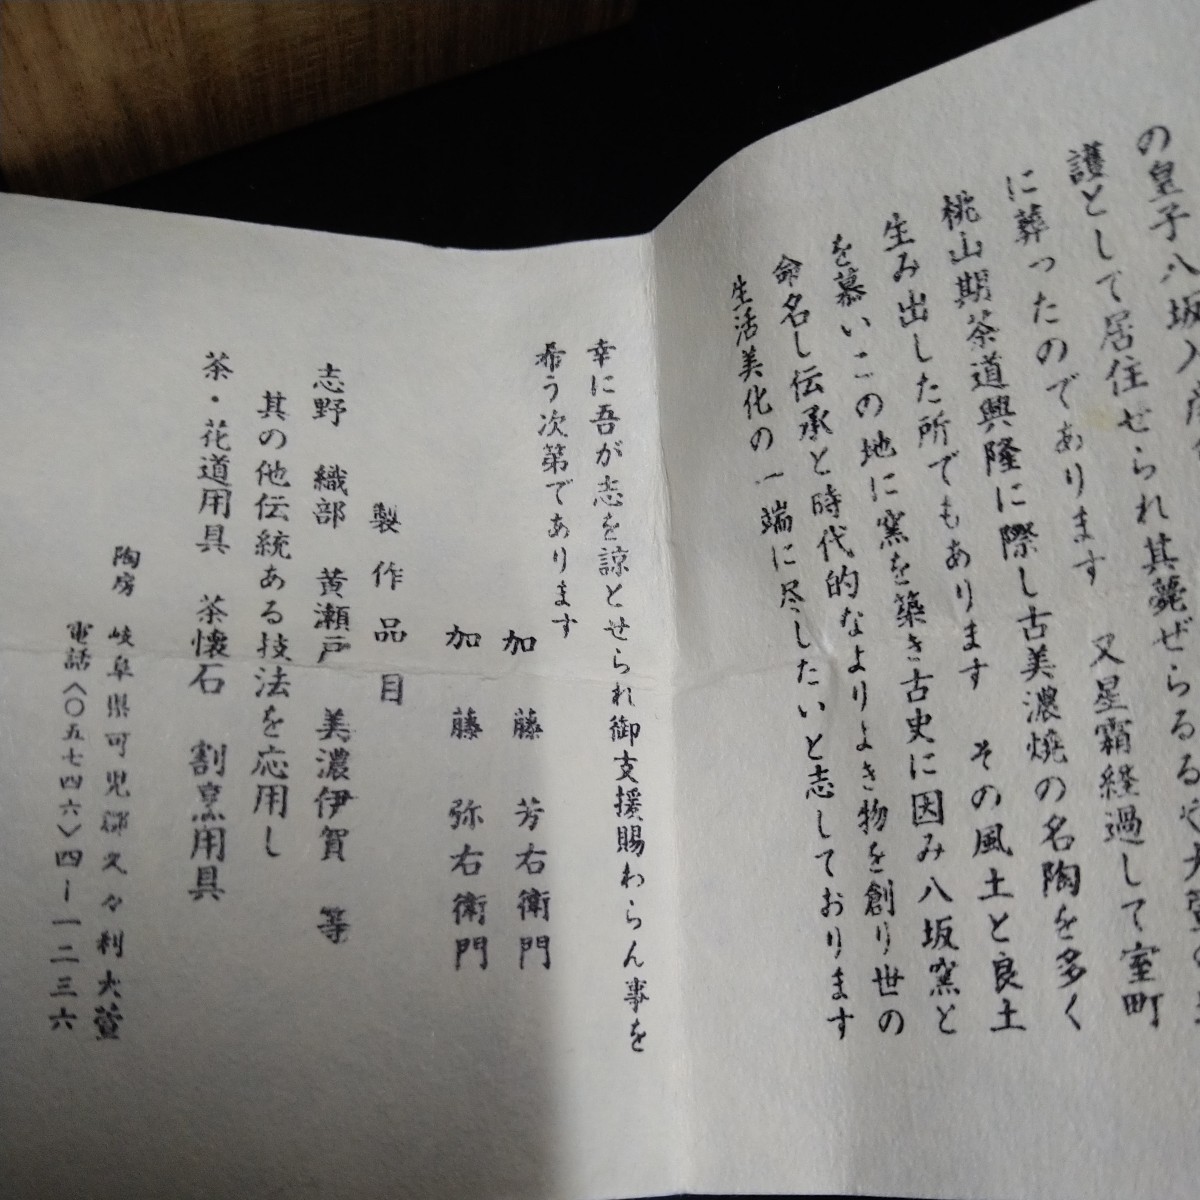 の皇子八坂入彦
護として居住せられ其薨ぜらるるや大萱の
に葬ったのであります 又星霜経過して室町
桃山期茶道興隆に際し古美濃焼の名陶を多く
生み出した所でもあります その風土と良土
を慕いこの地に窯を築き古史に因み八坂窯と
命名し伝承と時代的なよりよき物を創り世の
生活美化の一端に尽したいと志しております
幸に吾が志を諒とせられ御支援賜わらん事を
希う次第であります
加藤芳右衛門
加藤弥右衛門
製作品目
志野 織部 黄瀬戸 美濃伊賀 等
其の他伝統ある技法を応用し
茶・花道用具 茶懐石 割烹用具
陶房 岐阜県可児郡久々利大萱
電話〈〇五七四六〉四ー一二三六